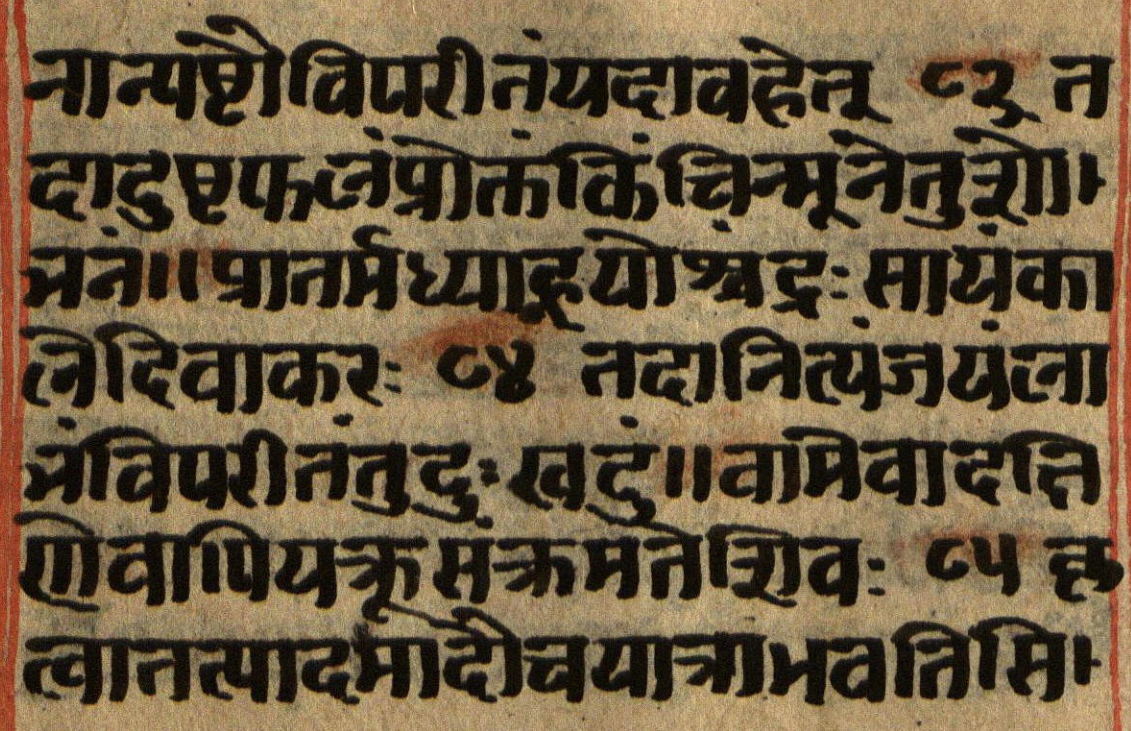 नान्यष्टौविपरीतंयदावहेत् ८३ त
दादुष्टफलंप्रोक्तंकिंचिन्मूनेतुशो॥
भनं॥प्रातर्मध्याह्नयोश्चंद्रःसायंका
लेदिवाकरः ८४ तदानित्यंजयंला
भंविपरीतंतुदुःखदं॥वामेवादक्षि
णेवापियत्रसंक्रमतेशिवः ८५ कृ
त्वातत्पादमादौचयात्राभवतिसि